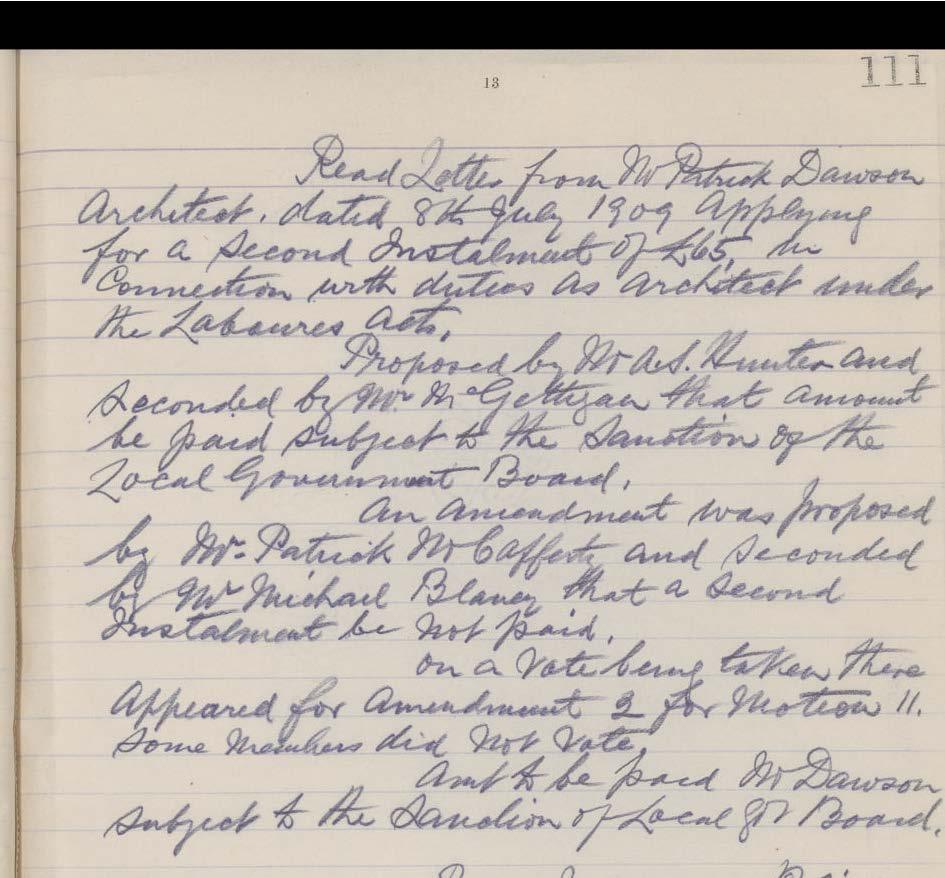 13
111
Read Letter from Mr Patrick Dawson
Architect. dated 8th July 1909 Applying
for a Second Instalment of £65, in
Connection with duties as Architect under
the Laboures Acts.
Proposed by Mr A.S. Hunter and
Seconded by Mr McGettigan that amount
be paid subject to the Sanction of the
Local Government Board.
An Amendment was proposed
by Mr Patrick McCafferty and Seconded
by Mr Michael Blaney that a Second
Instalment be Not paid.
On a Vote being taken there
Appeared for Amendment 2 for Motion 11.
Some Members did Not Vote.
Amt to be paid Mr Dawson
subject to the Sanction of Local Gt Board.